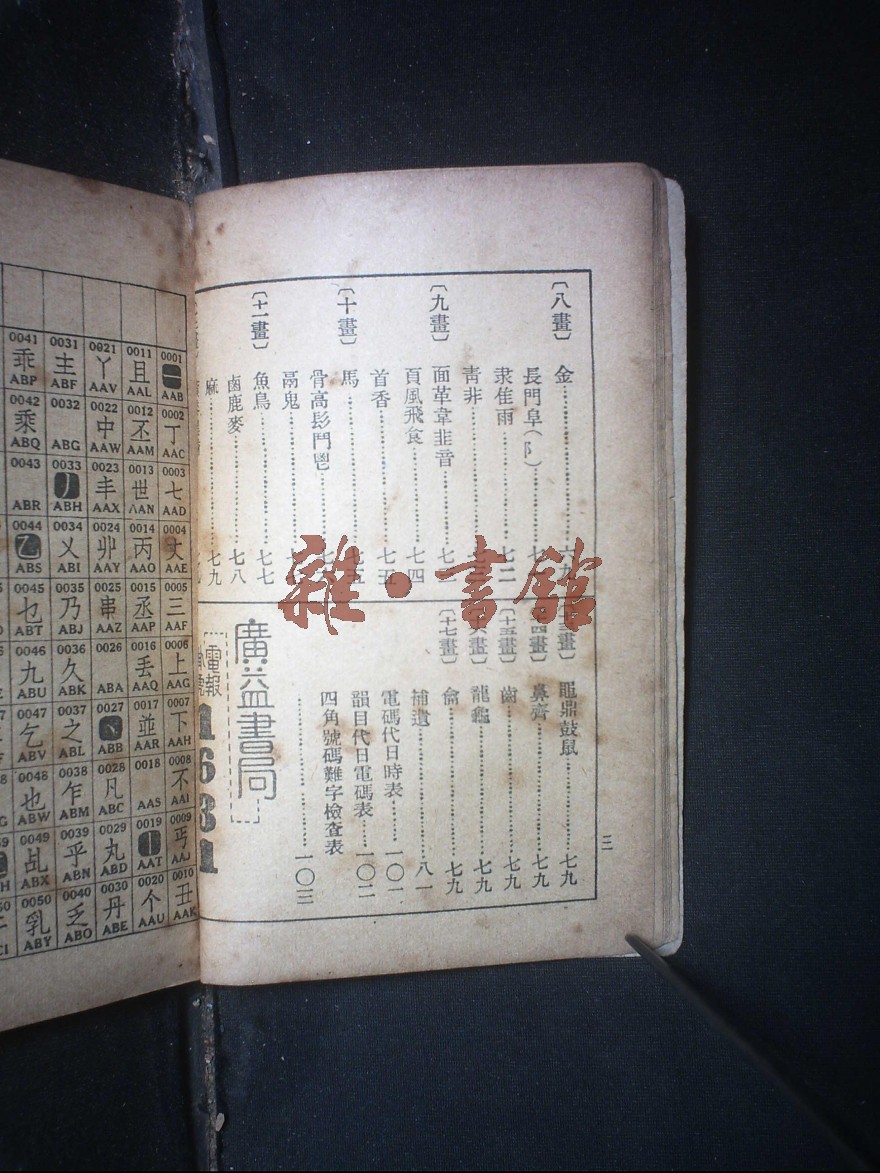 三
〔八畫〕
金……六九
長門阜(阝)
隶隹雨……七二
青非
〔九畫〕
面革韋韭音
頁風飛食……七四
首香……七五
〔十畫〕
馬……七五
骨高髟鬥鬯
鬲鬼
〔十一畫〕
魚鳥……七七
鹵鹿麥……七八
麻……七九
黽鼎鼓鼠……七九
〔十四畫〕
鼻齊……七九
〔十五畫〕
齒……七九
〔十六畫〕
龍龜……七九
〔十七畫〕
龠……七九
補遺……八一
電碼代日時表……一〇一
韻目代日電碼表……一〇二
四角號碼難字檢查表
……一〇三
廣益書局
電報
1631
0041 0031 0021 0011 0001
乖 主 丫 且 一
ABP ABF AAV AAL AAB
0042 0032 0022 0012 0002
乘 中 丕 丁
ABQ ABG AAW AAM AAC
0043 0033 0023 0013 0003
丿 丰 世 七
ABR ABH AAX AAN AAD
0044 0034 0024 0014 0004
乙 乂 丱 丙 丈
ABS ABI AAY AAO AAE
0045 0035 0025 0015 0005
乜 乃 串 丞 三
ABT ABJ AAZ AAP AAF
0046 0036 0026 0016 0006
九 久 丟 上
ABU ABK ABA AAQ AAG
0047 0037 0027 0017 0007
乞 之 丶 並 下
ABV ABL ABB AAR AAH
0048 0038 0028 0018 0008
也 乍 凡 不
ABW ABM ABC AAS AAI
0049 0039 0029 0019 0009
乩 乎 丸 丨 丐
ABX ABN ABD AAT AAJ
0050 0040 0030 0020 0010
乳 乏 丹 个 丑
ABY ABO ABE AAU AAK
雜·書館